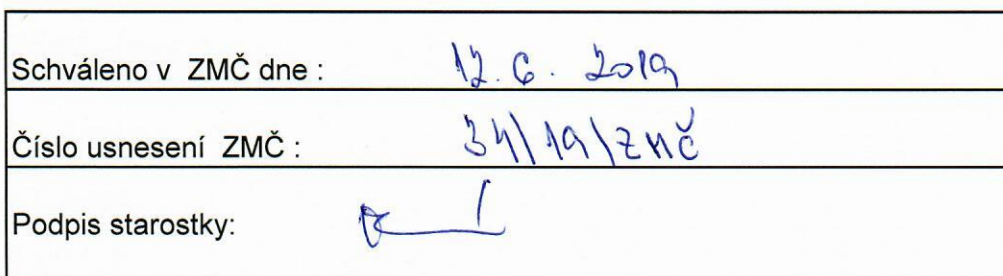 Schváleno v ZMČ dne : 12. 6. 2019
Číslo usnesení ZMČ : 34/19/ZMČ
Podpis starostky: